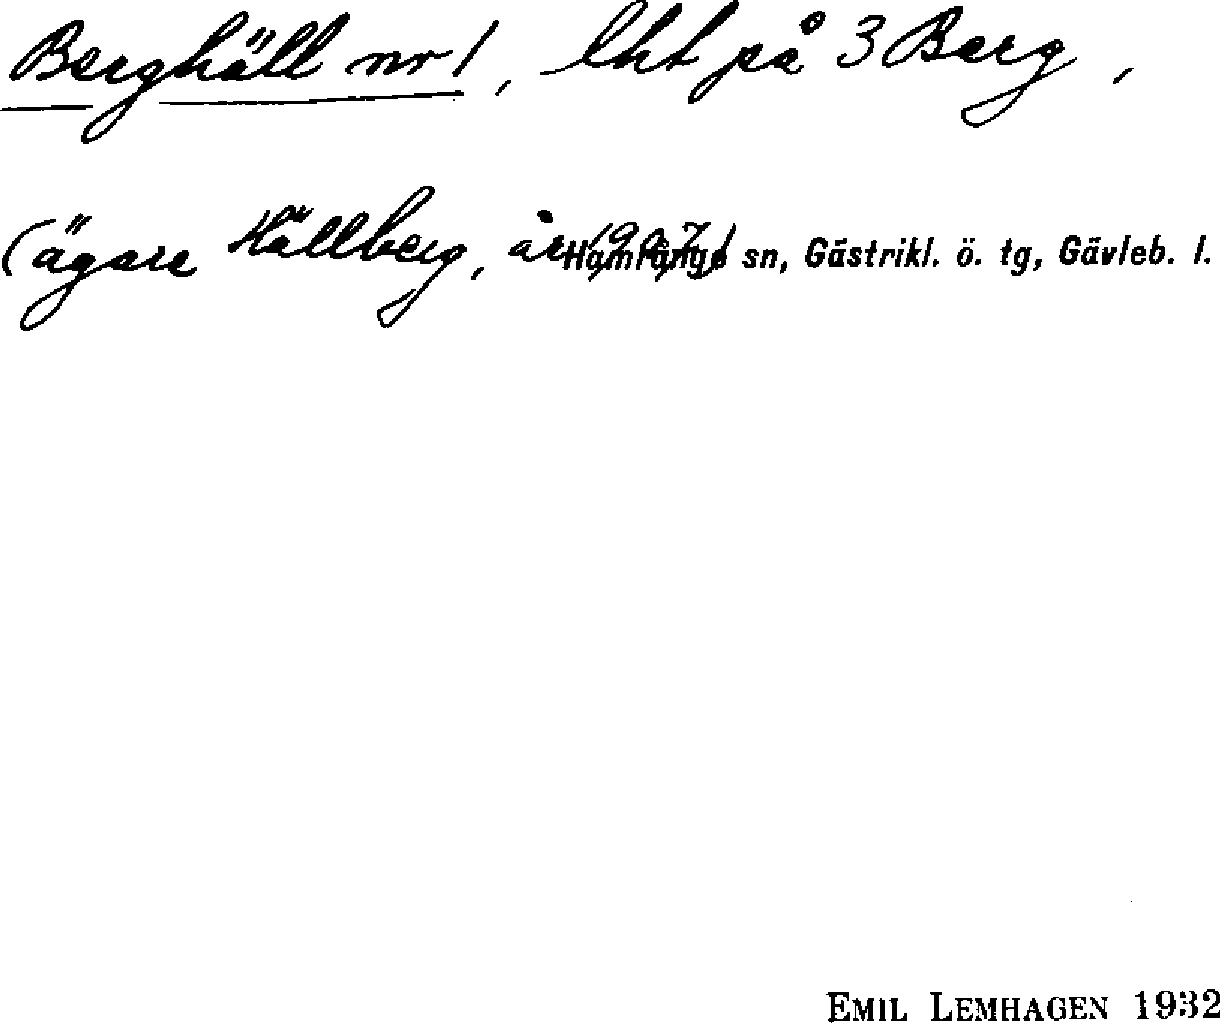 Berghäll nr 1, lht på 3 Berg,
(ägare Hällberg, år 1907)
Hamrånge sn, Gästrikl. ö. tg, Gävleb. l.
EMIL LEMHAGEN 1932